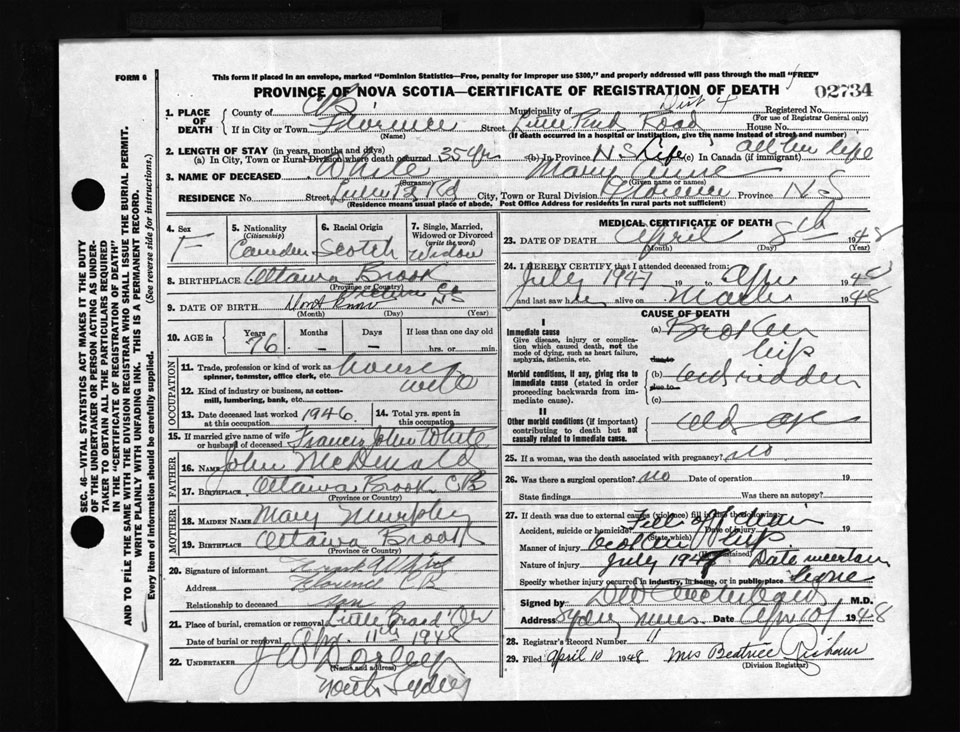 FORM 6
This form if placed in an envelope, marked "Dominion Statistics—Free, penalty for improper use $300," and properly addressed will pass through the mail "FREE"
PROVINCE OF NOVA SCOTIA—CERTIFICATE OF REGISTRATION OF DEATH
02734
1. PLACE OF DEATH
County of C B.
Municipality of Dist 4
Registered No.
(For use of Registrar General only)
If in City or Town Florence
(Name)
Street Road
House No.
(If death occurred in a hospital or institution, give the name instead of street and number)
2. LENGTH OF STAY (in years, months and days)
(a) In City, Town or Rural Division where death occurred 35 yrs
(b) In Province N S Life
(c) In Canada (if immigrant) all her life
3. NAME OF DECEASED White
(Surname)
Mary Anne
(Given name or names)
RESIDENCE No.
Street Rd
City, Town or Rural Division Florence
Province N S
(Residence means usual place of abode. Post Office Address for residents in rural parts not sufficient)
4. Sex
F
5. Nationality
(Citizenship)
6. Racial Origin
Scotch
7. Single, Married, Widowed or Divorced
(write the word)
Widow
8. BIRTHPLACE Ottawa Brook
(Province or Country)
9. DATE OF BIRTH Dont know
N S
(Month) (Day) (Year)
10. AGE in
Years
76
Months
–
Days
–
If less than one day old
hrs. or min.
OCCUPATION
11. Trade, profession or kind of work as spinner, teamster, office clerk, etc. house
12. Kind of industry or business, as cotton-mill, lumbering, bank, etc. wife
13. Date deceased last worked at this occupation 1946
14. Total yrs. spent in this occupation
15. If married give name of wife or husband of deceased Francis John White
FATHER
16. NAME John McDonald
17. BIRTHPLACE Ottawa Brook CB
(Province or Country)
MOTHER
18. MAIDEN NAME Mary Murphy
19. BIRTHPLACE Ottawa Brook
(Province or Country)
20. Signature of informant Frank White
Address Florence C B
Relationship to deceased son
21. Place of burial, cremation or removal Little Brasd'Or
Date of burial or removal Apr. 11th 1948
22. UNDERTAKER J W
(Name and address)
North Sydney
MEDICAL CERTIFICATE OF DEATH
23. DATE OF DEATH April 8th 1948
(Month) (Day) (Year)
24. I HEREBY CERTIFY that I attended deceased from:
July 1947 19 to Apr 1948
and last saw her alive on March 1948
CAUSE OF DEATH
I
Immediate cause
Give disease, injury or complication which caused death, not the mode of dying, such as heart failure, asphyxia, asthenia, etc.
(a) Broken hip
due to
Morbid conditions, if any, giving rise to immediate cause (stated in order proceeding backwards from immediate cause).
(b) bedridden
due to
(c)
II
Other morbid conditions (if important) contributing to death but not causally related to immediate cause.
old age
25. If a woman, was the death associated with pregnancy? no
26. Was there a surgical operation? no
Date of operation 19
State findings
Was there an autopsy?
27. If death was due to external causes (violence) fill in the following:
Accident, suicide or homicide
(State which)
Date of injury 19
Fall off chair
Manner of injury
(How sustained)
hip
Nature of injury July 1947 Date uncertain
Specify whether injury occurred in industry, in home, or in public place home
Signed by M.D.
Address Sydney Mines
Date Apr 10 1948
28. Registrar's Record Number 11
29. Filed April 10 1948 Mrs Beatrice
(Division Registrar)
SEC. 46—VITAL STATISTICS ACT MAKES IT THE DUTY
OF THE UNDERTAKER OR PERSON ACTING AS UNDER-
TAKER TO OBTAIN ALL THE PARTICULARS REQUIRED
IN THE "CERTIFICATE OF REGISTRATION OF DEATH"
AND TO FILE THE SAME WITH THE DIVISION REGISTRAR WHO SHALL ISSUE THE BURIAL PERMIT.
WRITE PLAINLY WITH UNFADING INK. THIS IS A PERMANENT RECORD.
Every item of information should be carefully supplied. (See reverse side for instructions.)